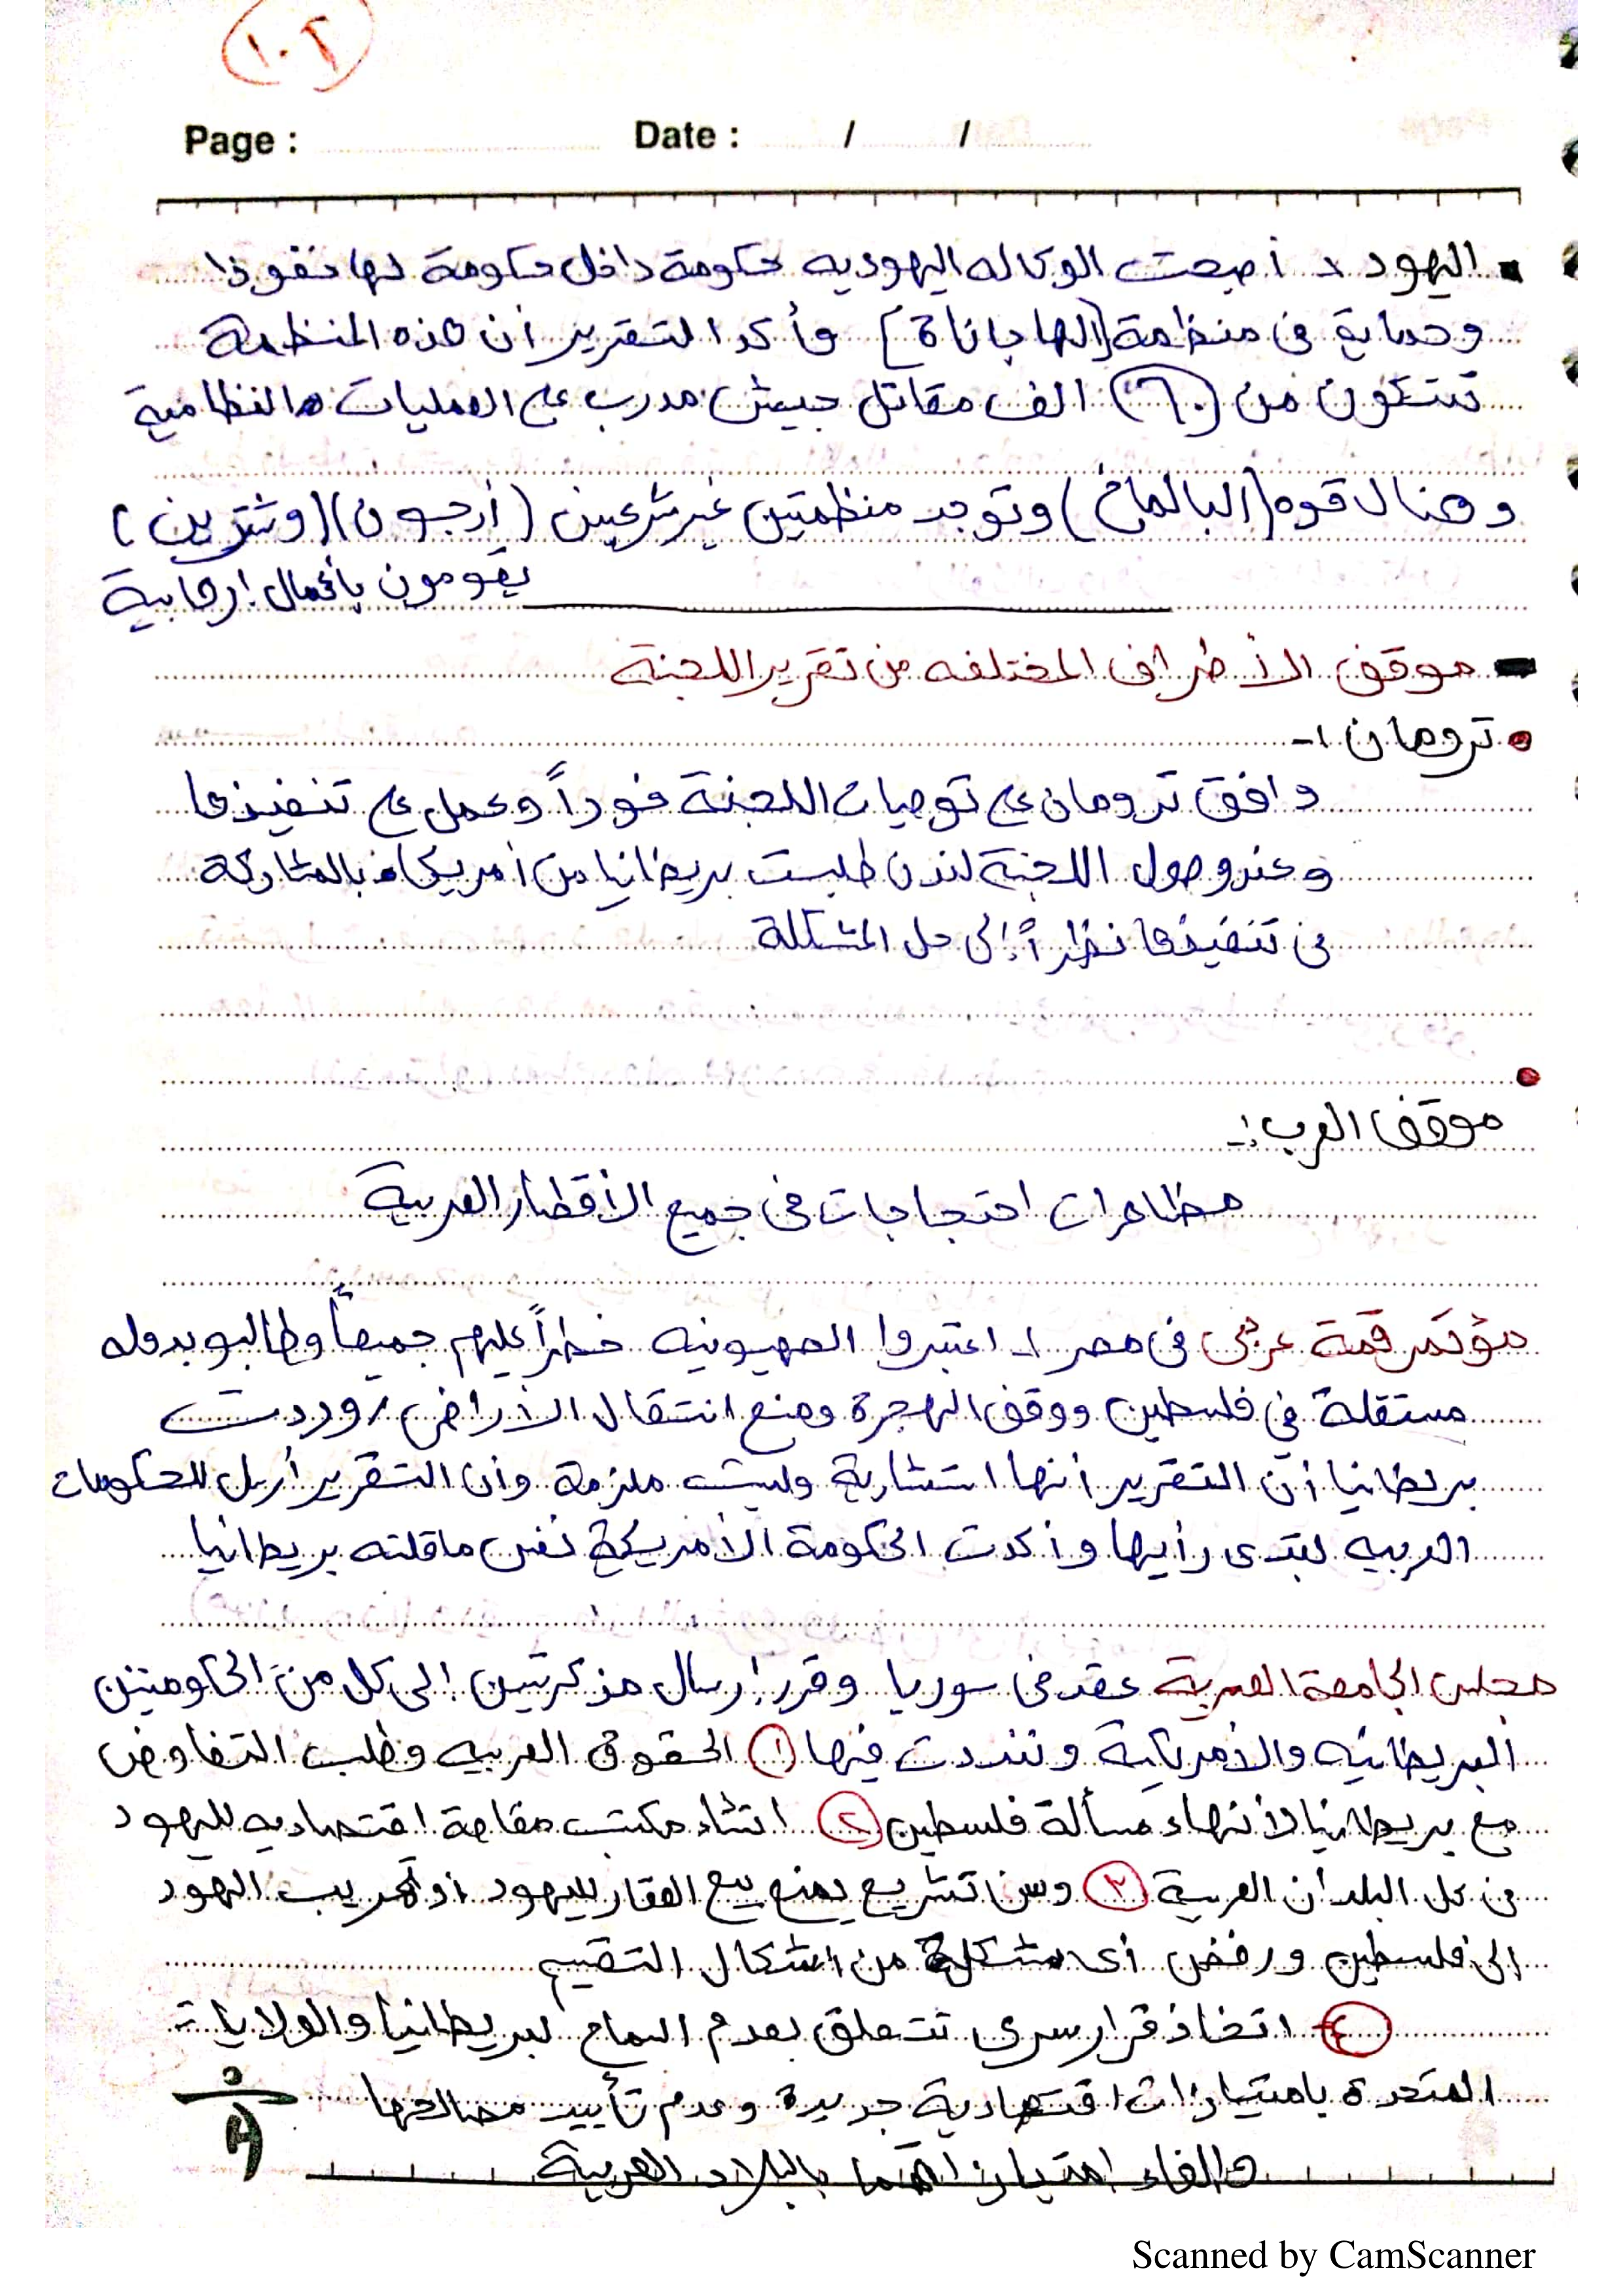 ١٠٢
Page : Date : / /
اليهود : أصبحت الوكاله اليهوديه حكومة داخل حكومة لها نفوذا
وحماية فى منظمة [الهاجاناة] وأكد التقرير أن هذه المنظمة
تتكون من (٦٠) الف مقاتل جيش مدرب على العمليات النظامية
وهناك قوه (البالماخ) وتوجد منظمتين غير شرعيين (أرجون) (وشترين)
يقومون بأعمال إرهابية
موقف الأطراف المختلفه من تقرير اللجنة
ترومان :-
وافق ترومان على توصيات اللجنة فوراً وعمل على تنفيذها
وعند وصول اللجنة لندن طلبت بريطانيا من أمريكا بالمشاركة
فى تنفيذها نظراً إلى حل المشكلة
موقف العرب :-
مظاهرات احتجاجات فى جميع الأقطار العربية
مؤتمر قمة عربى فى مصر :- اعتبروا الصهيونيه خطراً عليهم جميعاً وطالبو بدوله
مستقلة في فلسطين ووقف الهجرة ومنع انتقال الأراضى / وردت
بريطانيا أن التقرير أنها استشارية وليست ملزمة وأن التقرير أرسل للحكومات
العربيه لتبدى رأيها وأكدت الحكومة الأمريكية نفس ماقلته بريطانيا
مجلس الجامعة العربية عقد فى سوريا وقرر إرسال مذكرتين إلى كل من الحكومتين
البريطانيه والأمريكية وشددت فيها ① الحقوق العربيه وطلب التفاوض
مع بريطانيا لأنهاء مسألة فلسطين ② انشاء مكتب مقاطعة اقتصاديه لليهود
فى كل البلدان العربية ③ وسن تشريع يمنع بيع العقار لليهود أو تهريب اليهود
إلى فلسطين ورفض أى مشكلة من اشكال التقسيم
④ اتخاذ قرار سرى تتعلق بعدم السماح لبريطانيا والولايات
المتحدة بامتيازات اقتصادية جديدة وعدم تأييد مصالحها
والغاء امتيازاتهما بالبلاد العربية
Scanned by CamScanner